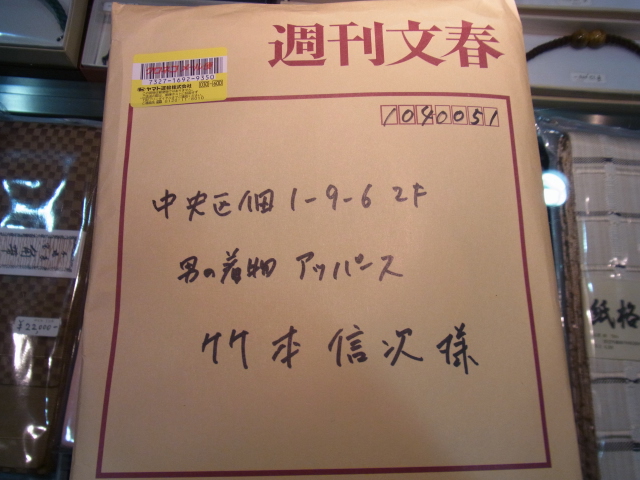 週刊文春
7327-1692-9350
ヤマト運輸株式会社
1040051
中央区佃1-9-6 2F
男の着物 アッパース
竹本信次様
¥22,000-
紙格